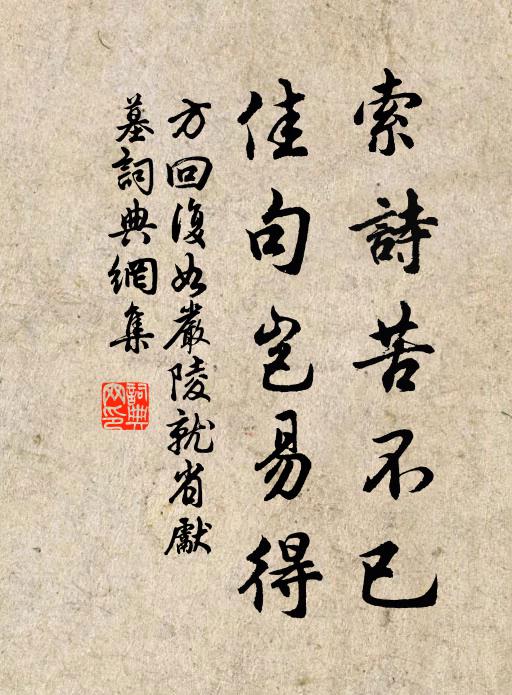 索詩苦不已
佳句豈易得
方回復如嚴陵就省獻
墓詞典網集
詞典網印